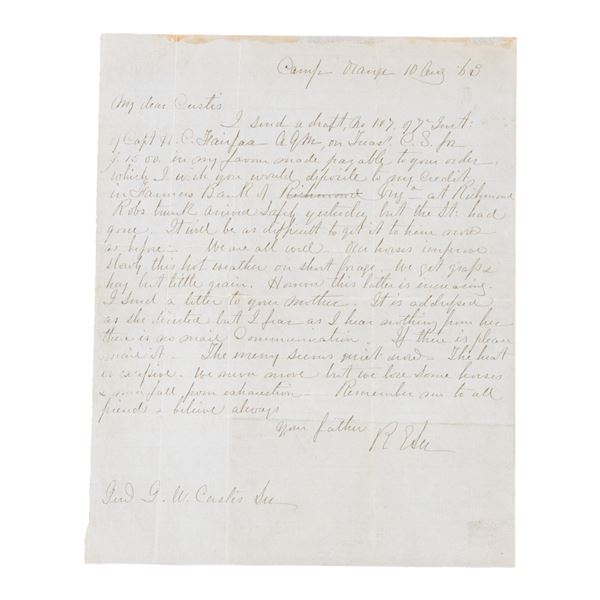 Camp Orange 10 Aug '63
My dear Custis
I send a draft, No 107, of 7th Inst:
of Capt H. C. Fairfax AQM, on Treas C. S. for
in my favour made payable to your order
which I wish you would deposite to my credit
in Farmers Bank of Richmond Virga at Richmond
Robs trunk arrived safely yesterday but the Lt: had
gone. It will be as difficult to get it to him now
as before - We are all well. Our horses improve
slowly this hot weather on short forage. We get grass
hay but little grain. However this latter is increasing.
I send a letter to your mother. It is addressed
as she directed but I fear as I hear nothing from her
there is no mail communication. If there is please
mail it - The enemy seems quiet now. The heat
is We never move but we lose some horses
& men fall from exhaustion - Remember me to all
friends & believe always
Your father
R E Lee
Genl G. W. Custis Lee